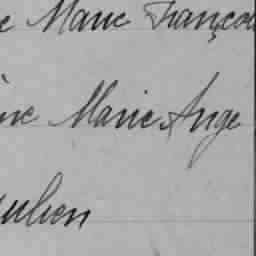 Marie François
Marie Ange
ulien